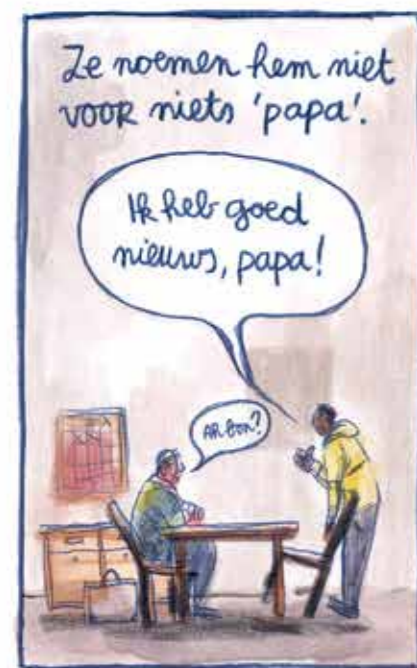 Ze noemen hem niet
voor niets 'papa'.
Ik heb goed
nieuws, papa!
AH BON?